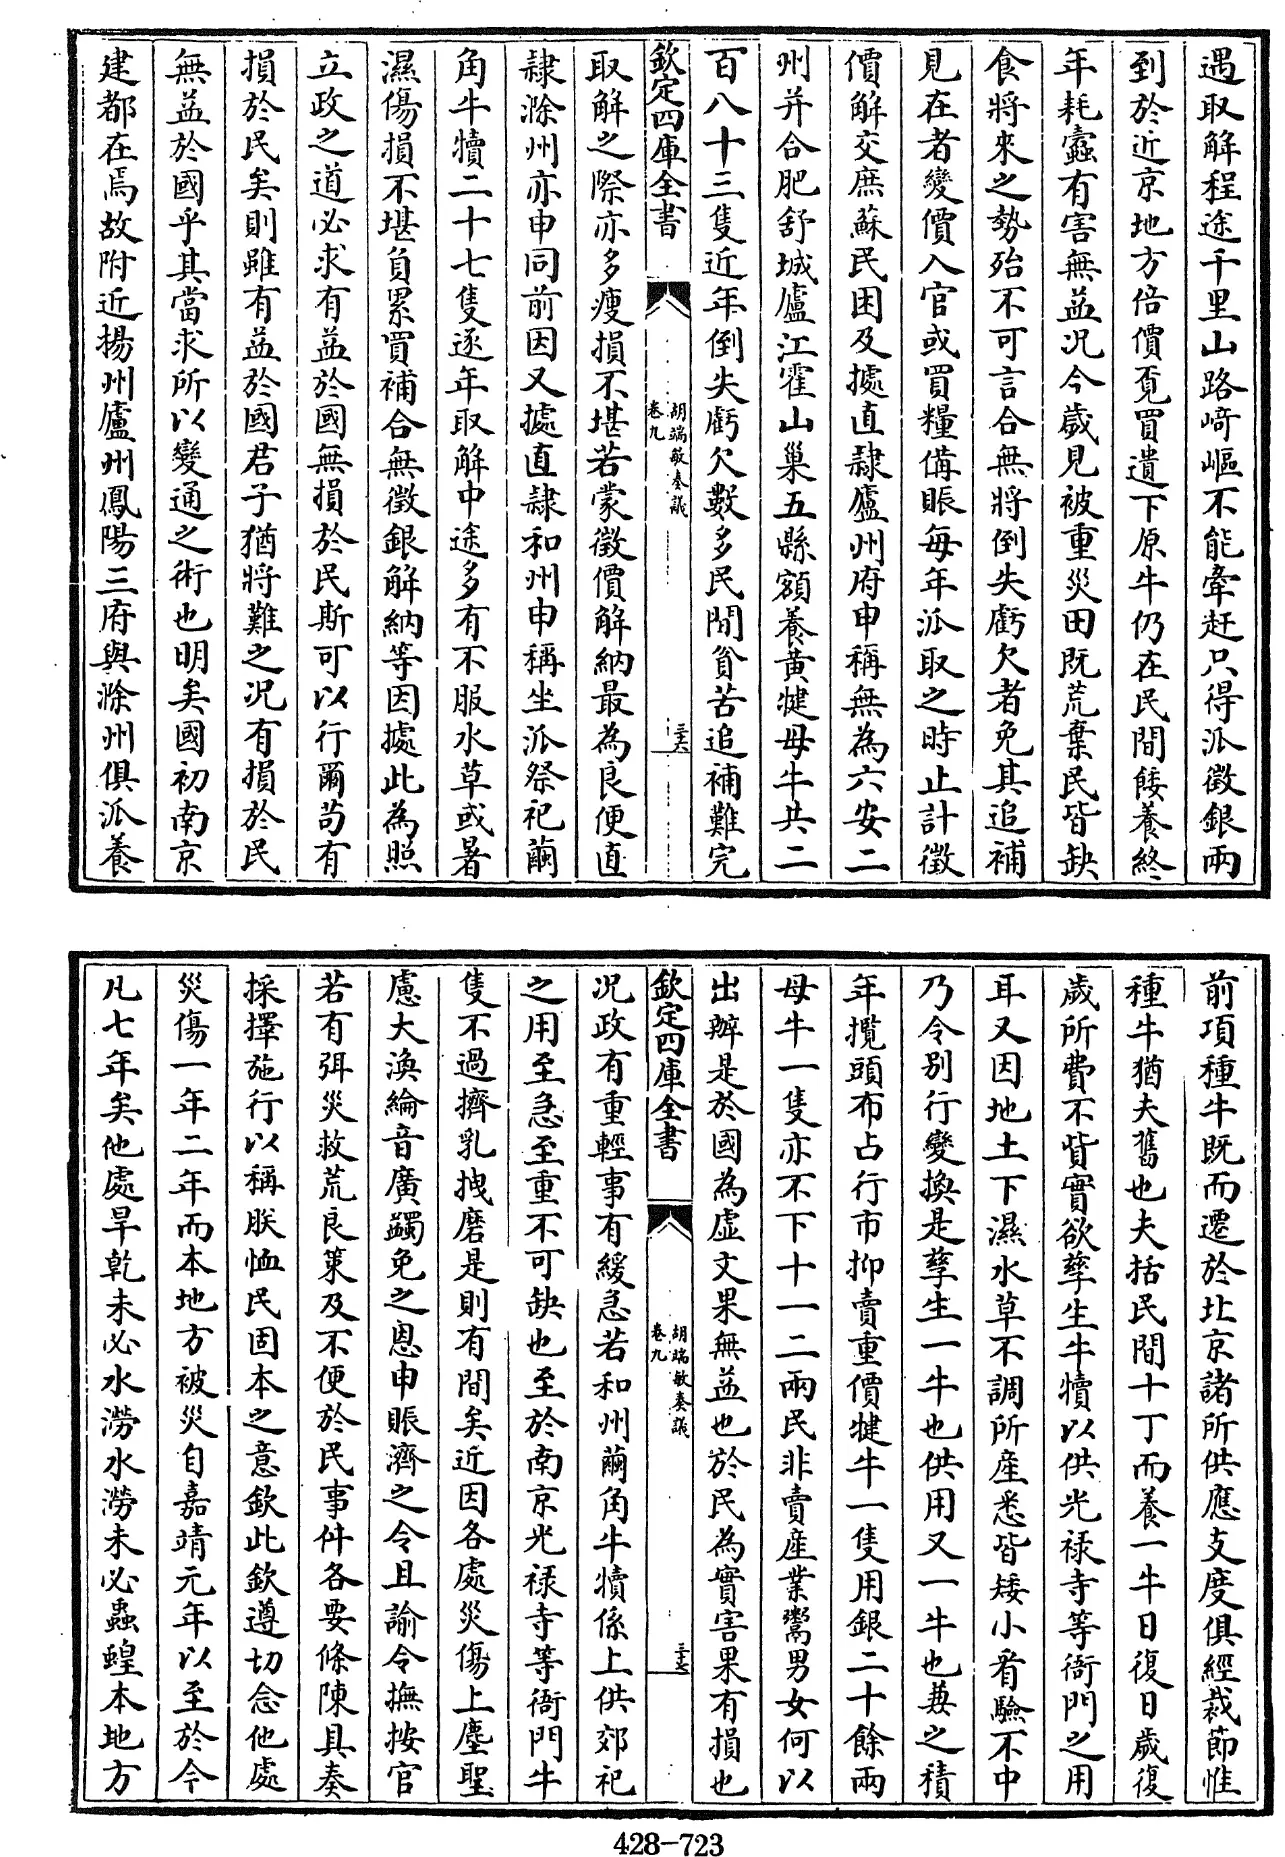 遇取解程途千里山路崎嶇不能牽赶只得派徵銀兩
到於近京地方倍價覔買遺下原牛仍在民間餧養終
年耗蠧有害無益况今歲見被重災田既荒棄民皆缺
食將來之勢殆不可言合無將倒失虧欠者免其追補
見在者變價入官或買糧備賑每年派取之時止計徵
價解交庶蘇民困及據直隷廬州府申稱無為六安二
州并合肥舒城廬江霍山巢五縣額養黄犍母牛共二
百八十三隻近年倒失虧欠數多民間貧苦追補難完
欽定四庫全書
胡端敏奏議
卷九
三十六
取解之際亦多瘦損不堪若蒙徵價解納最為良便直
隷滁州亦申同前因又據直隷和州申稱坐派祭祀繭
角牛犢二十七隻逐年取解中途多有不服水草或暑
濕傷損不堪負累買補合無徵銀解納等因據此為照
立政之道必求有益於國無損於民斯可以行爾茍有
損於民矣則雖有益於國君子猶將難之况有損於民
無益於國乎其當求所以變通之術也明矣國初南京
建都在焉故附近揚州廬州鳳陽三府與滁州俱派養
前項種牛既而遷於北京諸所供應支度俱經裁節惟
種牛猶夫舊也夫括民間十丁而養一牛日復日歲復
歲所費不貲實欲孳生牛犢以供光禄寺等衙門之用
耳又因地土下濕水草不調所産悉皆矮小看驗不中
乃令别行變換是孳生一牛也供用又一牛也兼之積
年攬頭布占行市抑賣重價犍牛一隻用銀二十餘兩
母牛一隻亦不下十一二兩民非賣産業鬻男女何以
出辦是於國為虚文果無益也於民為實害果有損也
欽定四庫全書
胡端敏奏議
卷九
三十七
况政有重輕事有緩急若和州繭角牛犢係上供郊祀
之用至急至重不可缺也至於南京光禄寺等衙門牛
隻不過擠乳拽磨是則有間矣近因各處災傷上塵聖
慮大渙綸音廣蠲免之恩申賑濟之令且諭令撫按官
若有弭災救荒良策及不便於民事件各要條陳具奏
採擇施行以稱朕恤民固本之意欽此欽遵切念他處
災傷一年二年而本地方被災自嘉靖元年以至於今
凡七年矣他處旱乾未必水澇水澇未必蟲蝗本地方
428-723